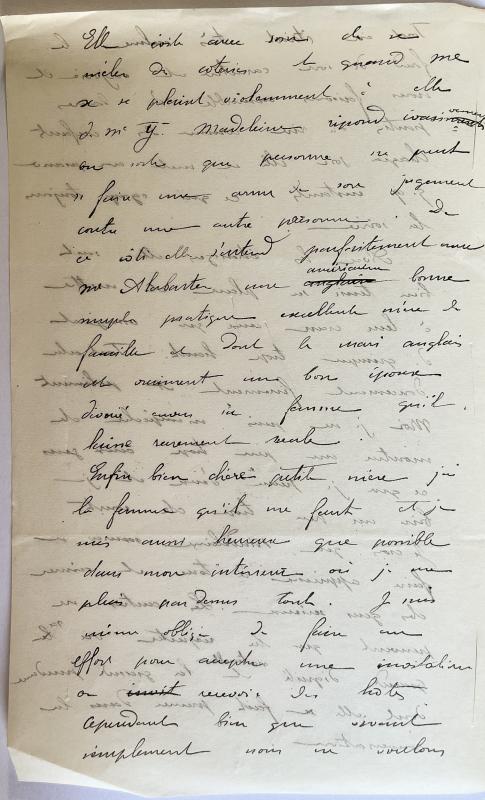 Elle évite avec soin de se
mêler de coteries et quand me
x se plaint violemment à elle
de me y. Madeleine répond
en sorte que personne ne peut
se faire une arme de son jugement
contre une autre personne. De
ce côté elle s'entend parfaitement avec
me Alabaster une anglaise américaine bonne
simple pratique excellente mère de
famille et dont le mari anglais
est vraiment un bon époux
dévoué avec sa femme qu'il
laisse rarement seule.
Enfin bien chère petite mère j'ai
la femme qu'il me faut et je
suis aussi heureux que possible
dans mon intérieur où je me
plais par dessus tout. Je suis
même obligé de faire un
effort pour accepter une invitation
ou invit recevoir des hôtes
Cependant bien que vivant
simplement nous ne voulons